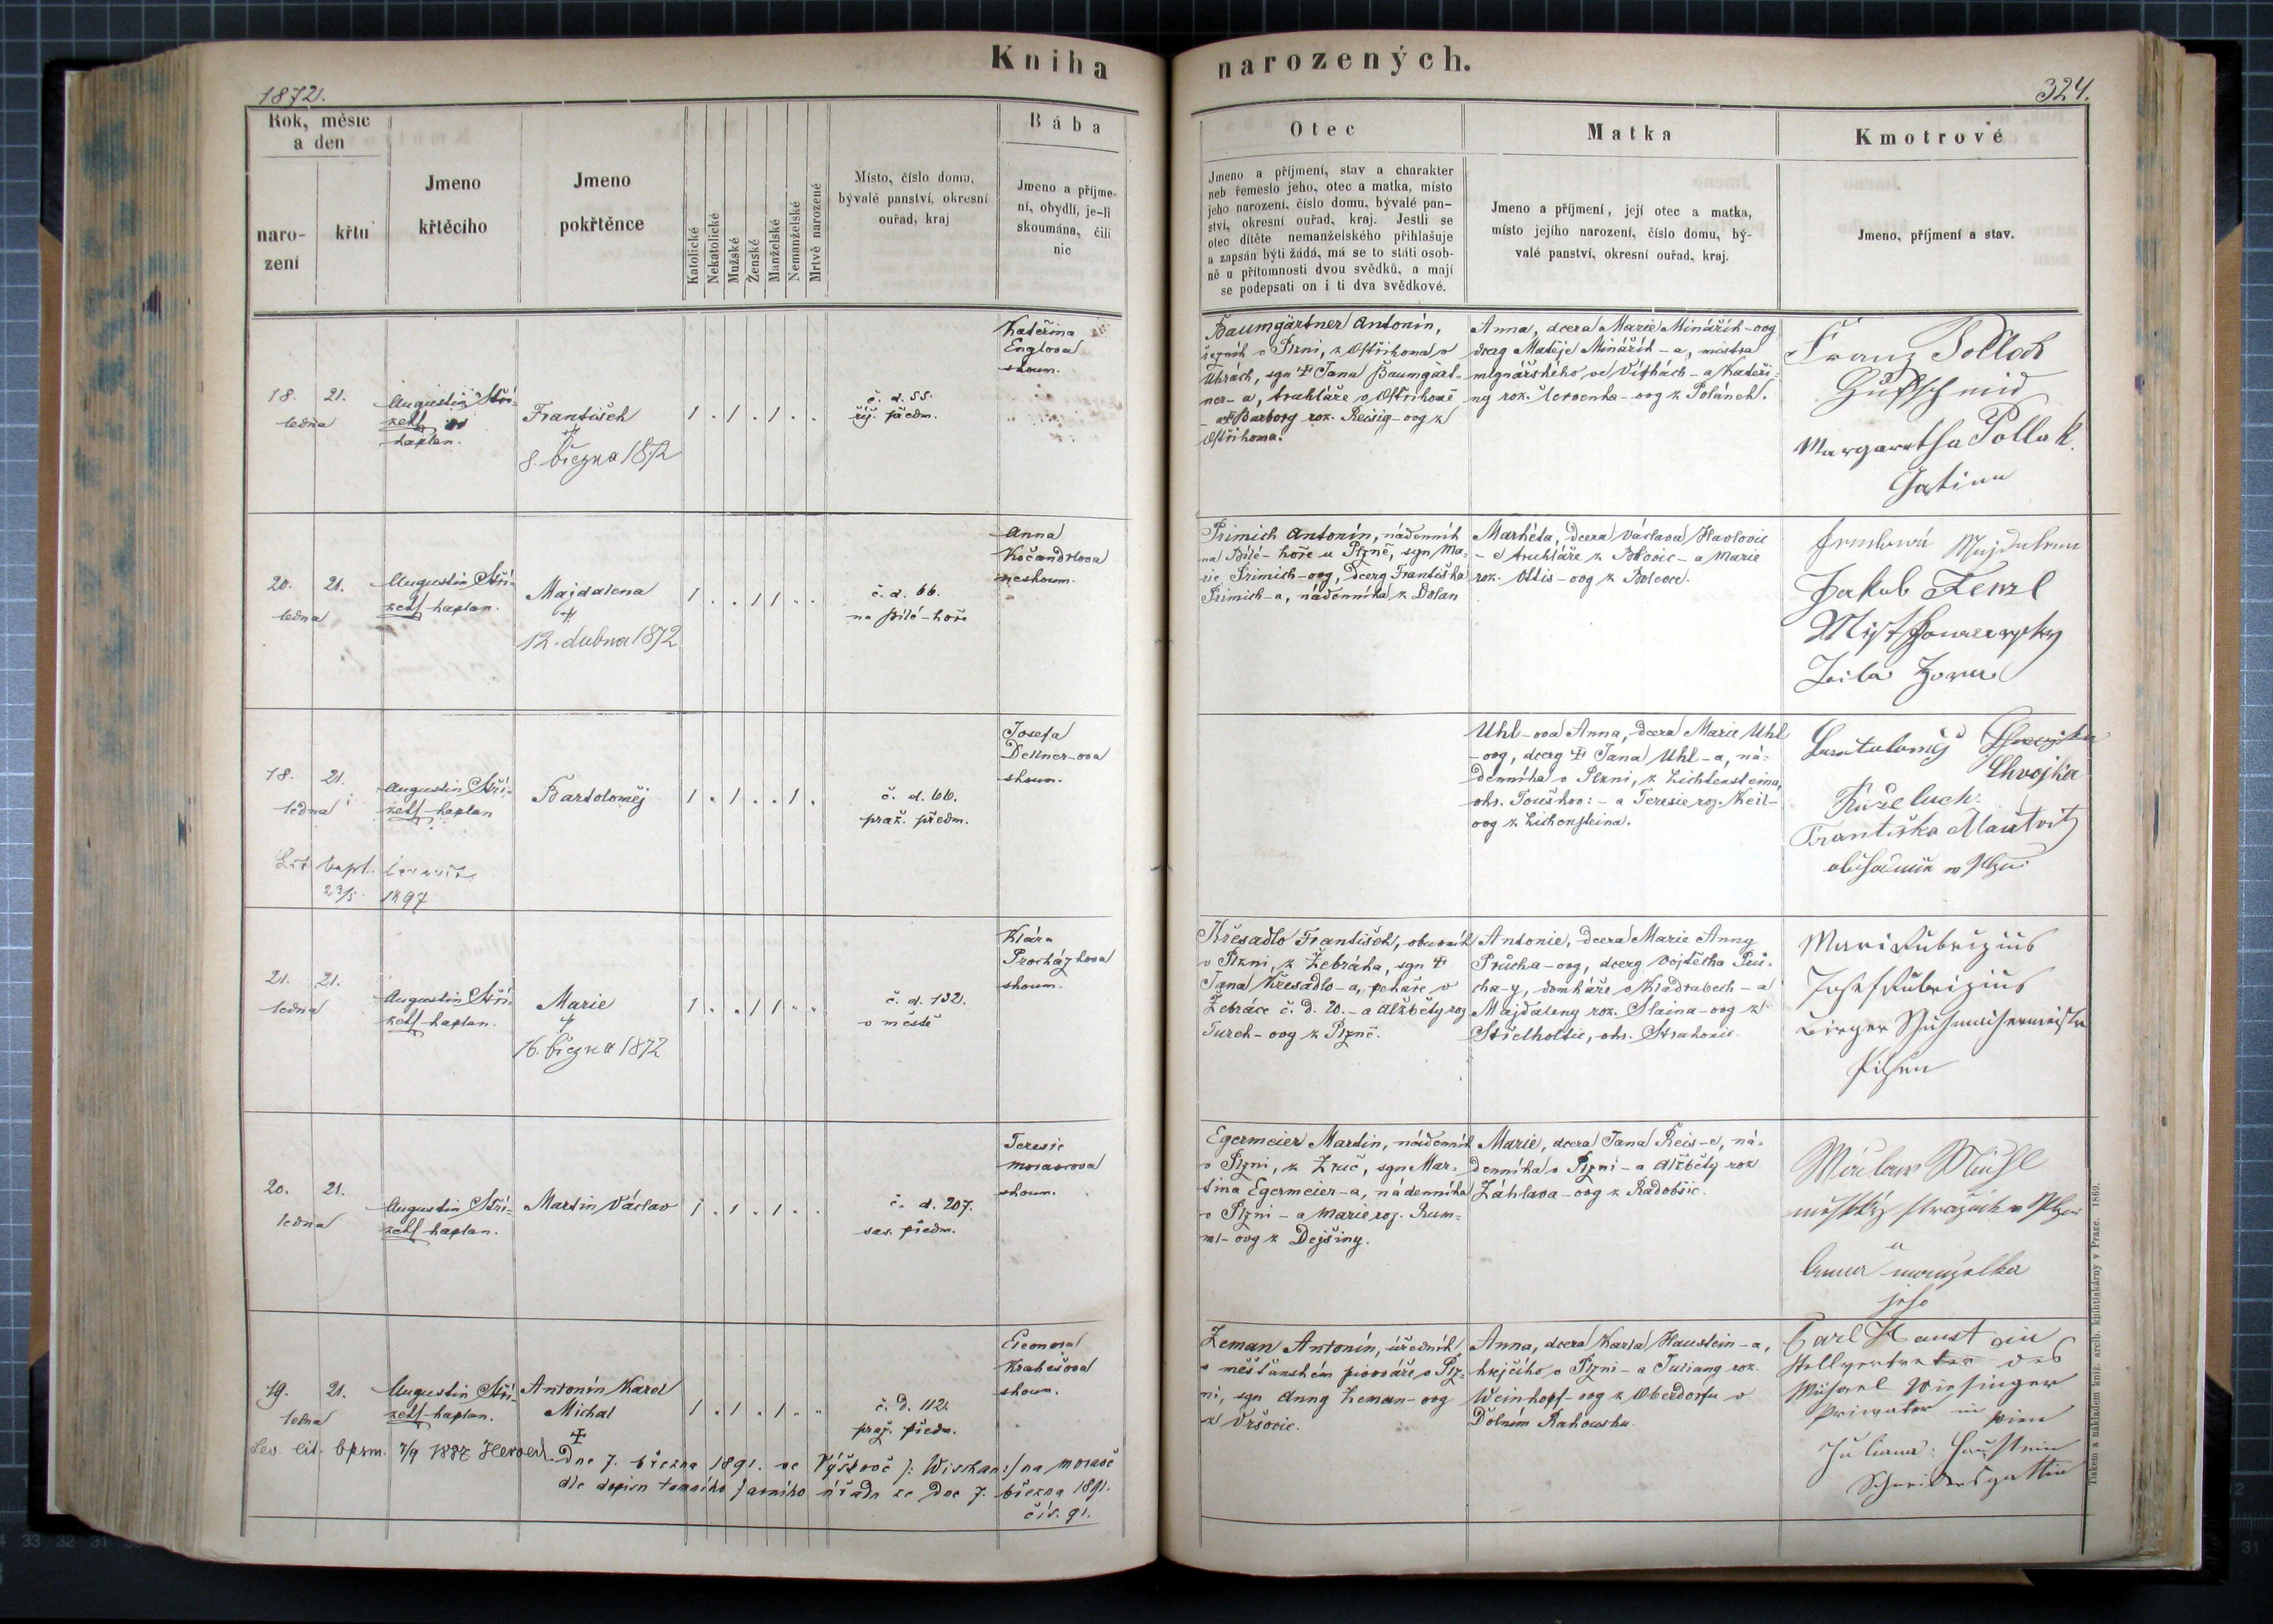 Kniha
narozených.
1872.
324.
Rok, měsíc
a den
naro-
zení
křtu
Jmeno
křtěcího
Jmeno
pokřtěnce
Katolické
Nekatolické
Mužské
Ženské
Manželské
Nemanželské
Mrtvě narozené
Místo, číslo domu,
bývalé panství, okresní
ouřad, kraj
Bába
Jmeno a příjme-
ní, obydlí, je-li
skoumána, čili
nic
Otec
Jmeno a příjmení, stav a charakter
neb řemeslo jeho, otec a matka, místo
jeho narození, číslo domu, bývalé pan-
ství, okresní ouřad, kraj. Jestli se
otec dítěte nemanželského přihlašuje
a zapsán býti žádá, má se to státi osob-
ně u přítomnosti dvou svědků, a mají
se podepsati on i ti dva svědkové.
Matka
Jmeno a příjmení, její otec a matka,
místo jejího narození, číslo domu, bý-
valé panství, okresní ouřad, kraj.
Kmotrové
Jmeno, příjmení a stav.
18. 21.
ledna
Augustin Stří-
kaplan.
František
8. března 1872
1 . 1 . 1 . .
č. d. 55.
říš. předm.
Kateřina
Englova
skoum.
Baumgärtner Antonín,
v Plzni, z Ostřihoma v
Uhrách, syn Jana Baumgärt-
ner-a, truhláře v Ostřihomě
a Barbory roz. Reisig-ovy z
Ostřihoma.
Anna, dcera Marie Minářík-ovy
dcery Matěje Minářík-a, mistra
mlynářského ve Vískách - a Kateři-
ny roz. Červenka-ovy z Polánek.
Franz Pollak
Margaretha Pollak
Gattinn
20. 21.
ledna
Augustin Stří-
kaplan.
Majdalena
12. dubna 1872
1 . . 1 1 . .
č. d. 66.
na Bílé-hoře
Anna
Kočandrlova
neskoum.
Primich Antonín, nádenník
na Bílé-hoře u Plzně, syn Ma-
rie Primich-ovy, dcery Františka
Primich-a, nádenníka z Dolan
Markéta, dcera Václava Havlovic
- e truhláře z Bolevic - a Marie
roz. Ottis-ovy z Bolevce.
Majdalena
Jakub Fenzl
18. 21.
ledna
Augustin Stří-
kaplan
Bartoloměj
1 . 1 . . 1 .
č. d. 66.
praž. předm.
Josefa
Dellner-ova
skoum.
23/5. 1897
Uhl-ova Anna, dcera Marie Uhl
-ovy, dcery Jana Uhl-a, ná-
denníka v Plzni, z Lichtensteina,
okr. Touškov: - a Teresie roz. Keil-
ovy z Lichensteina.
Bartoloměj
Chvojka
Františka
21. 21.
ledna
Augustin Stří-
kaplan.
Marie
16. března 1872
1 . . 1 1 . .
č. d. 132.
v městě
Klára
Procházkova
skoum.
Křesadlo František, obuvník
v Plzni, z Žebráka, syn
Jana Křesadlo-a, pekaře v
Žebráce č. d. 20. - a Alžběty roz
Turek-ovy z Plzně.
Antonie, dcera Marie Anny
Průcha-ovy, dcery Vojtěcha Prů-
cha-y, domkáře v Kladrubech - a
Majdaleny roz. Slaina-ovy z
Střelhoštic, okr. Strakonic.
Mari Rubrizius
Josef Rubrizius
Pilsen
20. 21.
ledna
Augustin Stří-
kaplan.
Martin Václav
1 . 1 . 1 . .
č. d. 207.
sas. předm.
Teresie
Moravcova
skoum.
Egermeier Martin, nádenník
v Plzni, z Zruč, syn Mar-
tina Egermeier-a, nádenníka
v Plzni - a Marie roz. Rum-
ml-ovy z Dejšiny.
Marie, dcera Jana Reis-e, ná-
denníka v Plzni - a Alžběty roz
Záhlava-ovy z Radobšic.
manželka
jeho
19. 21.
ledna
Augustin Stří-
kaplan.
Antonín Karel
Michal
1 . 1 . 1 . .
č. d. 112.
praž. předm.
Eleonora
Krahešova
skoum.
7/9 1887
Dne 7. března 1891. ve Výškově /: Wischau:/ na Moravě
dle dopisu tamního farního úřadu ze dne 7. března 1891.
čís. 91.
Zeman Antonín, úředník
v měšťanském pivováře v Plz-
ni, syn Anny Zeman-ovy
z Vršovic.
Anna, dcera Karla Haustein-a,
krejčího v Plzni - a Juliany roz.
Weinhopf-ovy z Oberdorfu v
Dolním Rakousku.
Carl Haustein
Stellvertreter des
Michael Wiesinger
Privater in Wien
Juliana Haustein
Schneidersgattin
Tiskem a nákladem kníž. arcib. knihtiskárny v Praze. 1869.